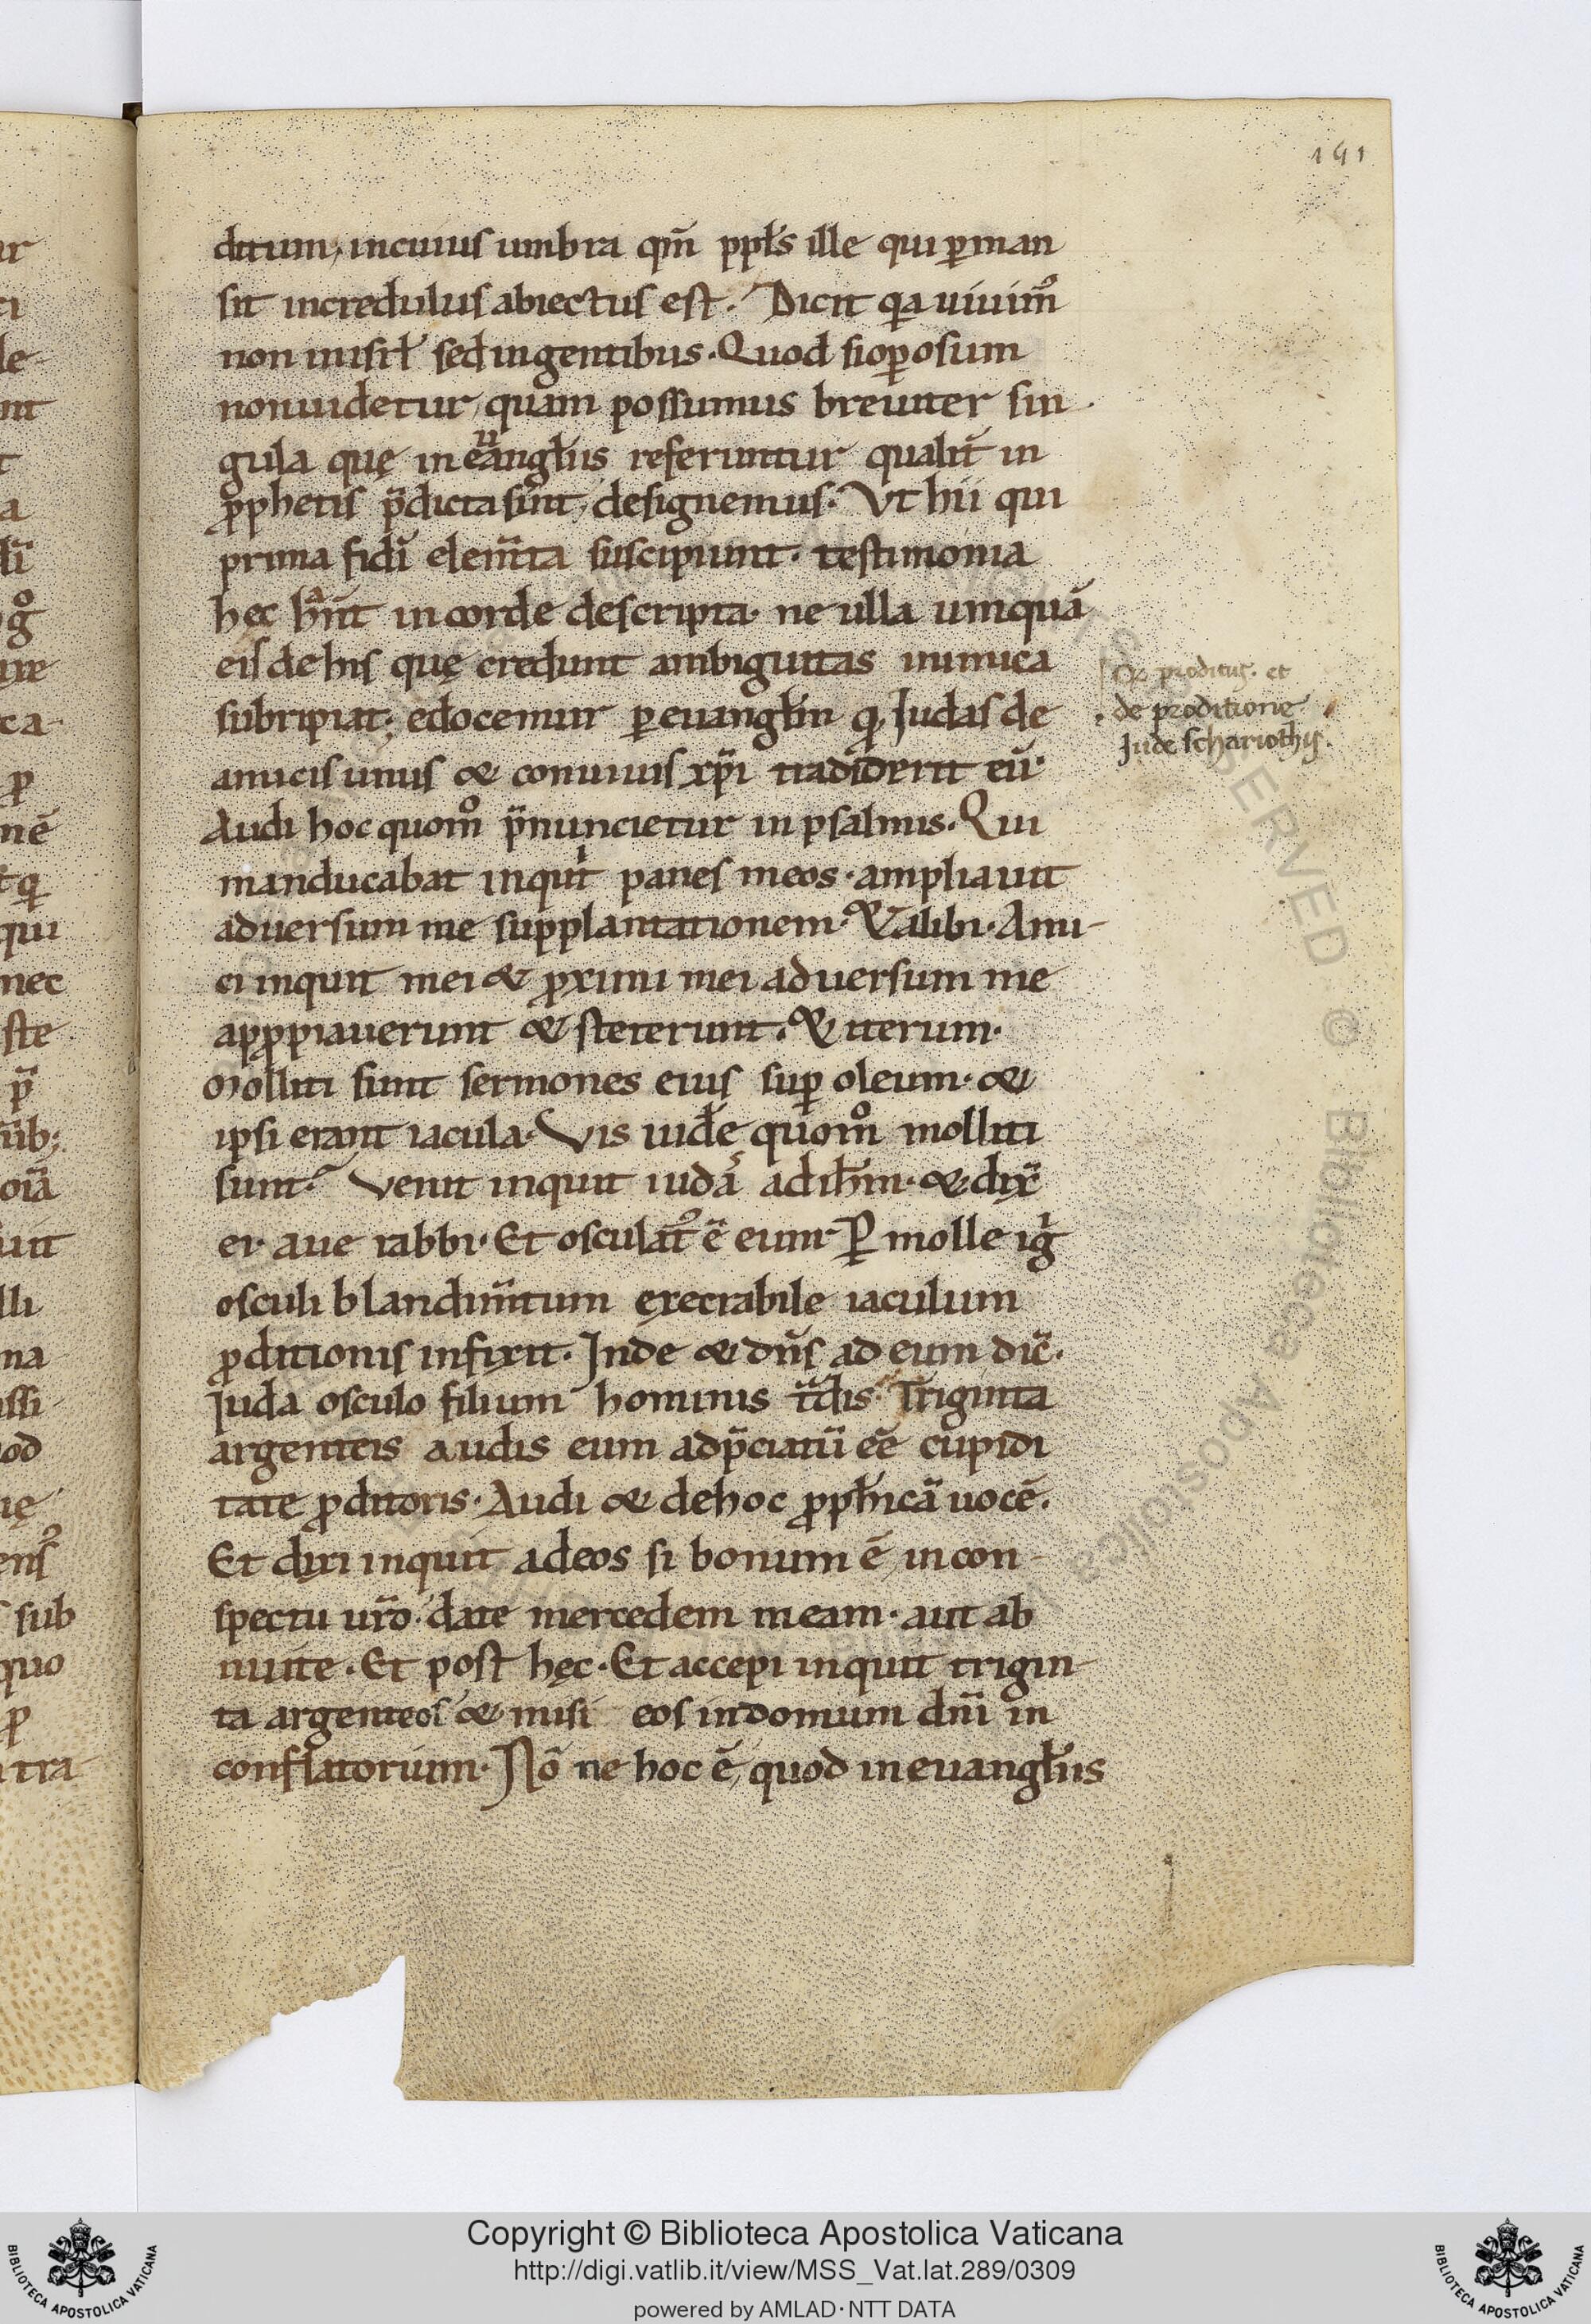 191
ditum, incuius umbra qm̄ ppl̄s ille qui ꝑman
sit incredulus abiectus est. Dicit qa uiuim᷒
non inisrl̄ sed ingentibus. Quod sioꝑosum
nonuidetur, quam possumus breuiter sin
gula quę in euangl̄iis referuntur qualit̄ in
ꝓphetis p̄dicta sint, designemus. Vt hii qui
prima fidi elem̄ta suscipiunt. testimonia
hec hn̄t in corde descripta. ne ulla umquā
eis de his quę credunt ambiguitas inimica
subripiat; edocemur ꝑ euangl̄im q, Iudas de
amicis unus & conuiuis xp̄i tradiderit eū.
Audi hoc quom̊ p̄nuncietur in psalmis. Qui
manducabat inquit panes meos. ampliauit
aduersum me supplantationem. & alibi. Ami-
ci inquit mei & ꝓximi mei aduersum me
appropiauerunt & steterunt. & iterum.
Molliti sunt sermones eius suꝑ oleum. &
ipsi erant iacula. Vis uidē quom̊ molliti
sunt? Venit inquit iudas ad ih̄m. & dix̄
ei. aue rabbi. Et osculat᷒ ē eum. Per molle igi
osculi blandim̄tum ęxecrabile iaculum
ꝓditionis infixit. Inde & dn̄s ad eum dic̄.
Iuda osculo filium hominis t̄dis. Triginta
argenteis audis eum adp̄ciatū eē cupidi
tate ꝓditoris. Audi & dehoc ꝓpheticā uocē.
Et dixi inquit adeos si bonum ē, in con-
spectu ur̄o. date mercedem meam. aut ab
nuite. Et post hęc. Et accepi inquit trigin-
ta argenteos & misi eos indomum dn̄i in
conflatorium. Nō ne hoc ē, quod in euangl̄iis
proditus. et
de proditione
Iude schariothis.
Copyright © Biblioteca Apostolica Vaticana
http://digi.vatlib.it/view/MSS_Vat.lat.289/0309
powered by AMLAD·NTT DATA
BIBLIOTECA APOSTOLICA VATICANA
BIBLIOTECA APOSTOLICA VATICANA